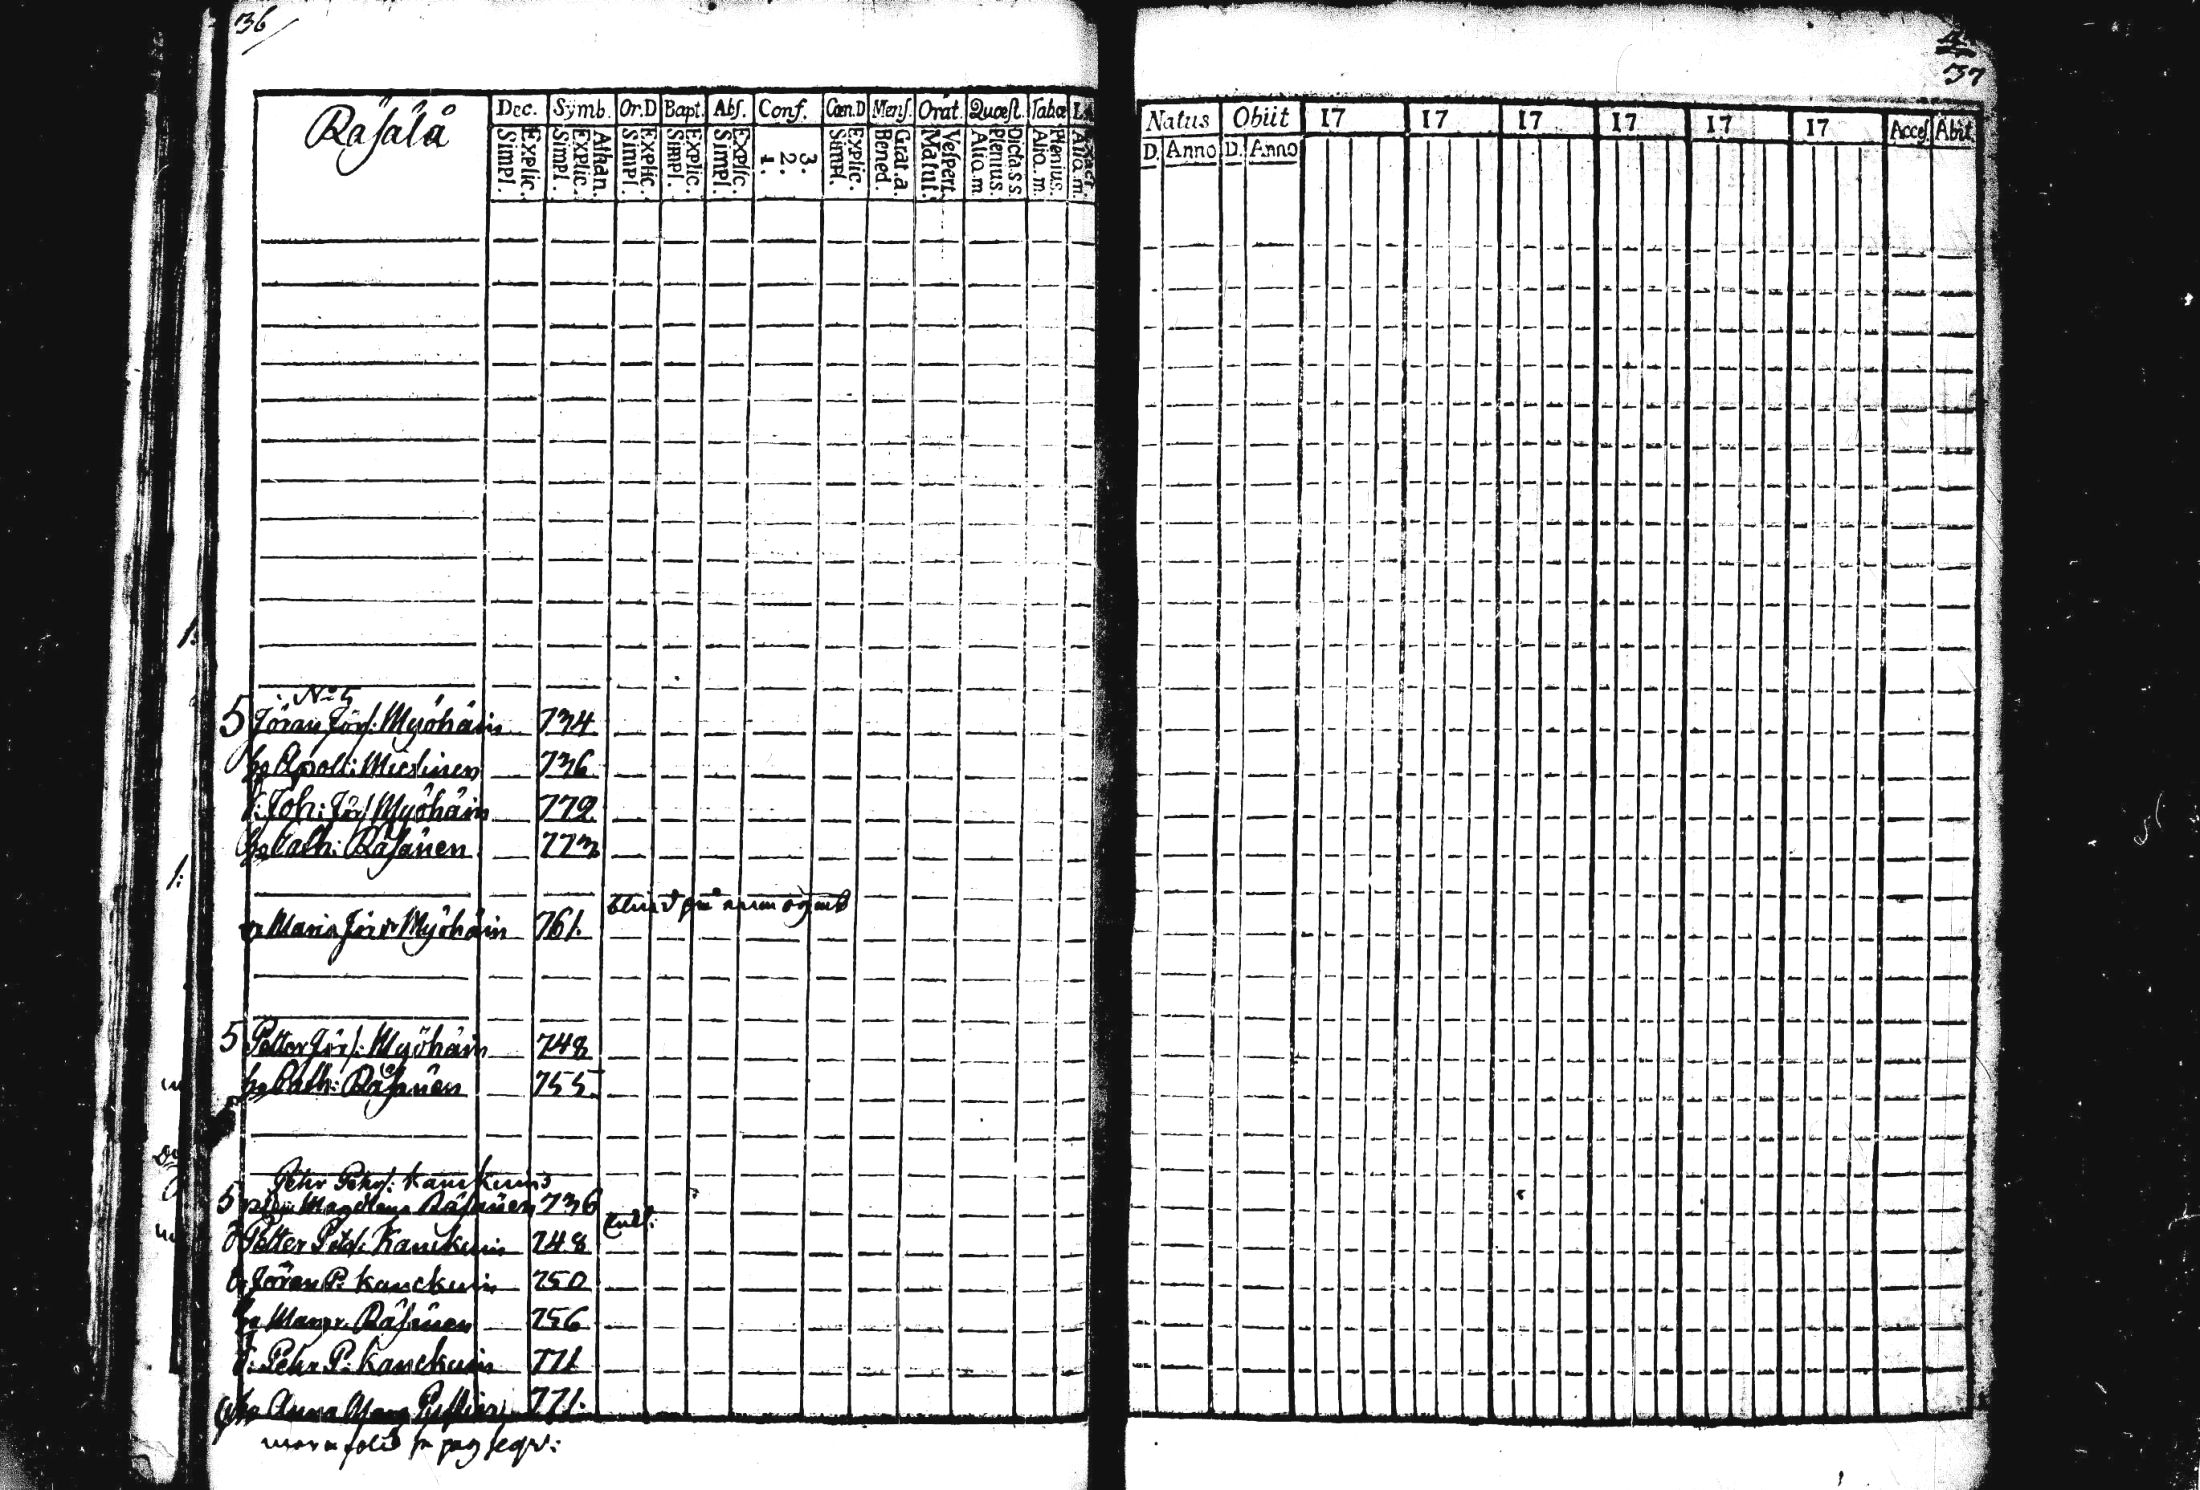 36
Räsälä
Dec. Symb. Or.D Bapt. Abs. Conf. Cœn.D Mens. Orat. Quæst. Tabœ
Explic. Simpl. Athan. Explic. Simpl. Explic. Simpl. Explic. Simpl. Explic. Simpl. 3. 2. 1. Explic. Simpl. Grat. a. Bened. Vespert. Matut. Dicta. s s. Plenius. Aliq. m. Plenius. Aliq. m. Aliq. m.
No 5
5 Jöran Jörs: Myöhäin 734
h. Apoll: Miedinen 736
S: Joh: Jörs Myöhäin 772
h. Cath: Räsänen 773
blind på
Maria Jörsdr Myöhäin 761.
5 Petter Jörs: Myöhäin 748
h. Cath: Räsänen 755.
Pehr Pehrs: Kanckuins
5 Magdlena Räsänen 736
Petter Pets: Kanckuin 748
Jöran P: Kanckuin 750
h. Margr. Räsänen 756
S: Pehr P: Kanckuin 771
h. Anna 771.
pag seqv:
37
Natus Obiit 17 17 17 17 17 17 Acces. Abit
D. Anno D. Anno